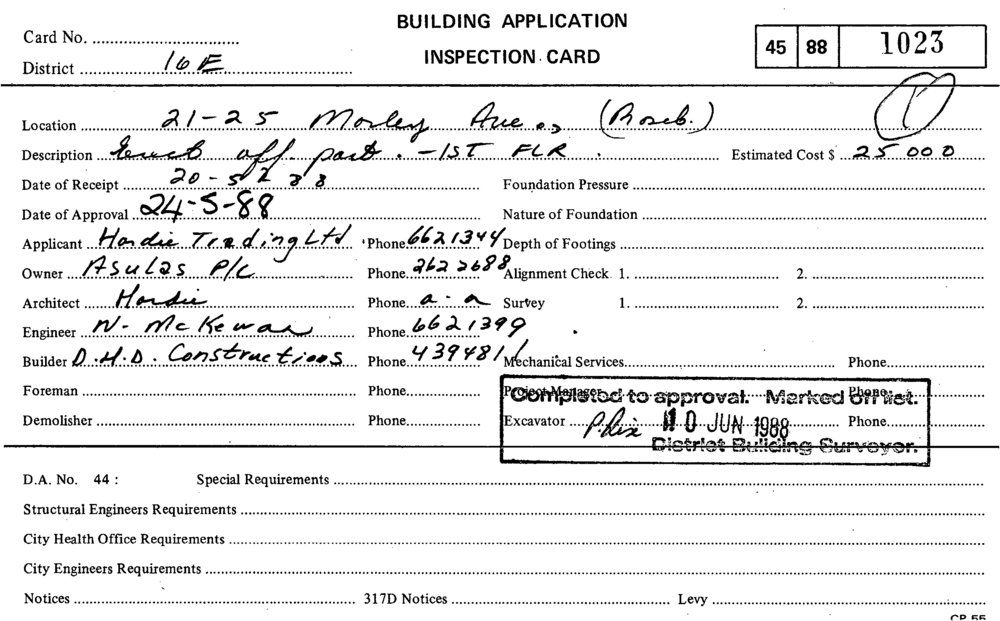 BUILDING APPLICATION
Card No.
INSPECTION CARD
45 88 1023
District 16E
1
Location 21-25 Morley Ave., (Roseb.)
Description Erect off. part. - 1ST FLR. Estimated Cost $ 25 000
Date of Receipt 20-5-88 Foundation Pressure
Date of Approval 24-5-88 Nature of Foundation
Applicant Hardie Trading Ltd Phone 6621344 Depth of Footings
Owner Asulas P/L Phone 262 2688 Alignment Check 1. 2.
Architect Hardie Phone a - a Survey 1. 2.
Engineer N. McKewan Phone 6621399
Builder D.H.D. Constructions Phone 4394811 Mechanical Services Phone
Foreman Phone Project Manager Phone
Completed to approval. Marked off list.
Demolisher Phone Excavator Phone
P. Rix 10 JUN 1988
District Building Surveyor.
D.A. No. 44 : Special Requirements
Structural Engineers Requirements
City Health Office Requirements
City Engineers Requirements
Notices 317D Notices Levy
CP 55